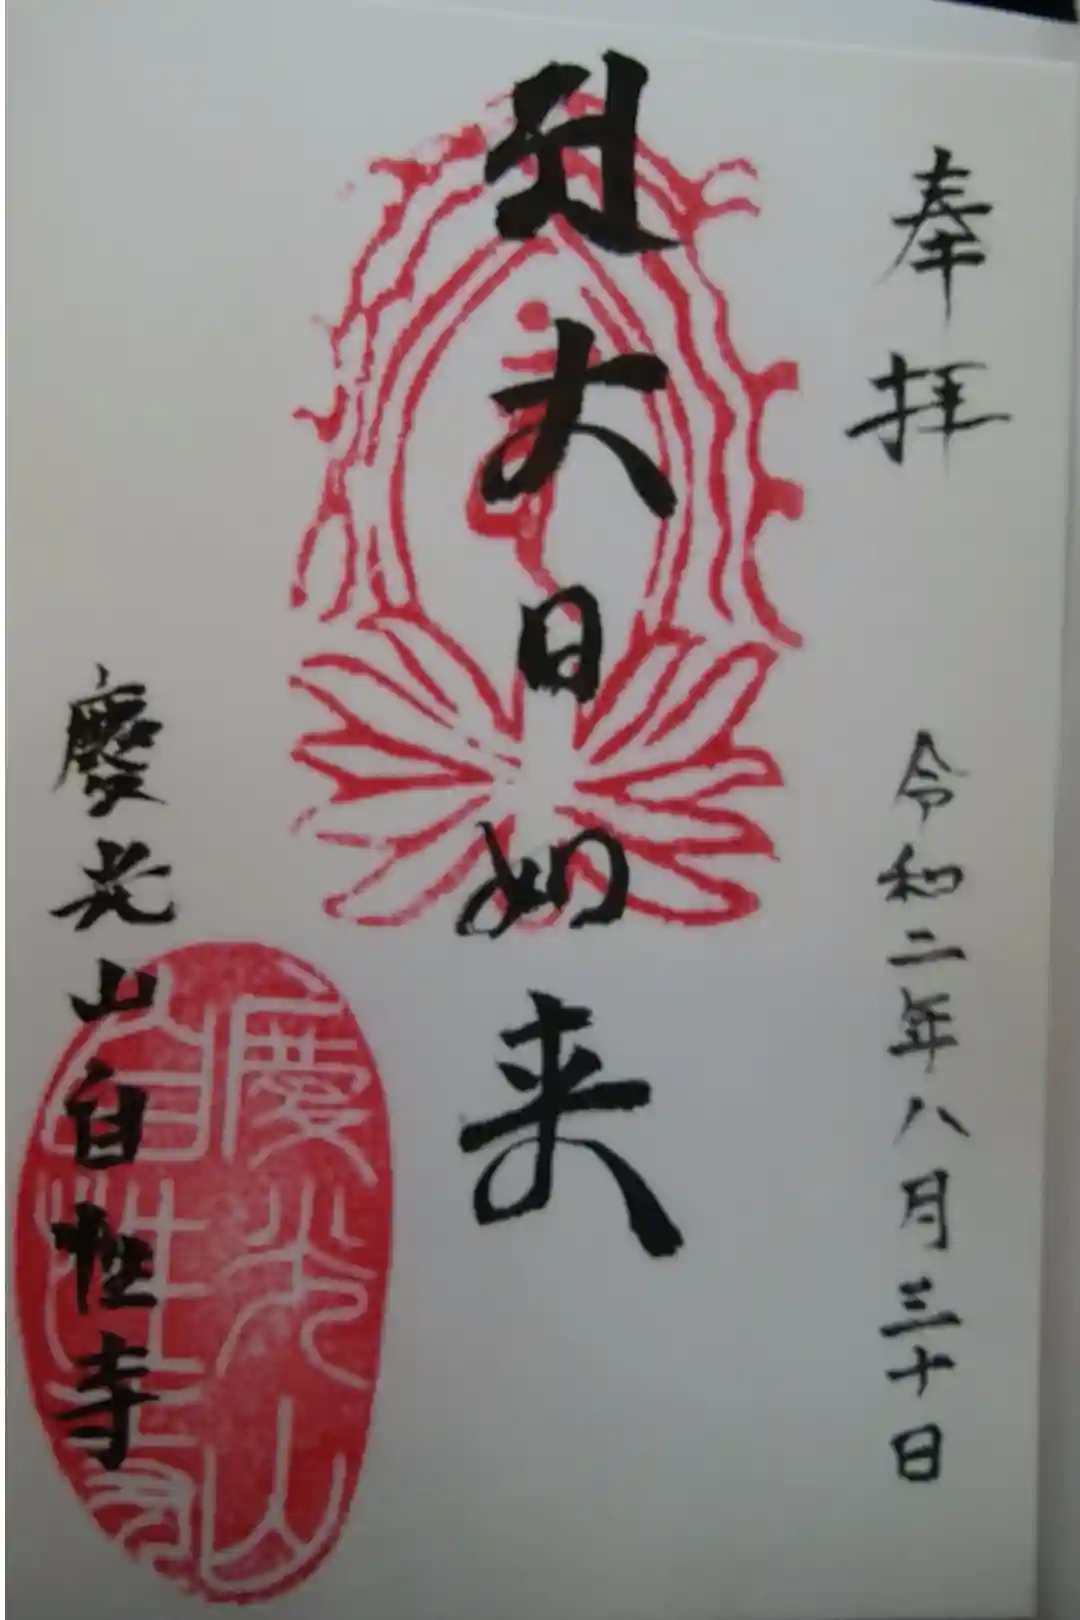 奉拝
令和二年八月三十日
大日如来
慶光山自性寺
慶光山
自性寺